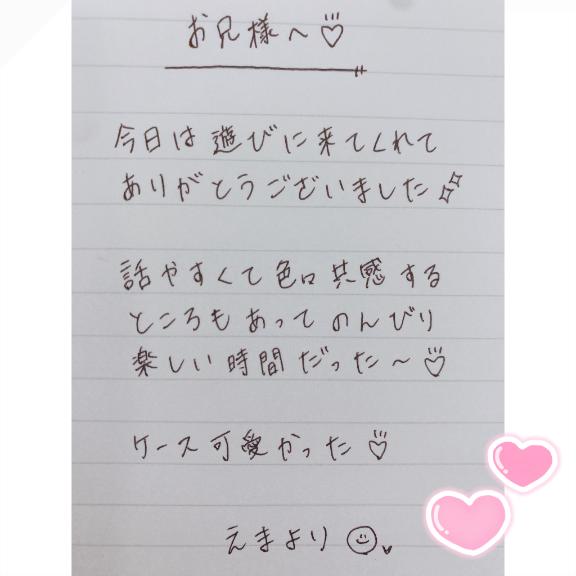 お兄様へ♡
今日は遊びに来てくれて
ありがとうございました✨
話やすくて色ロ共感する
ところもあってのんびり
楽しい時間だった〜♡
ケース可愛かった♡
えまより☺♥